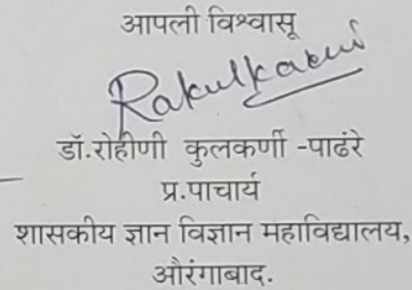 आपली विश्वासू
Rakulkarni
डॉ.रोहीणी कुलकर्णी -पाढंरे
प्र.पाचार्य
शासकीय ज्ञान विज्ञान महाविद्यालय,
औरंगाबाद.